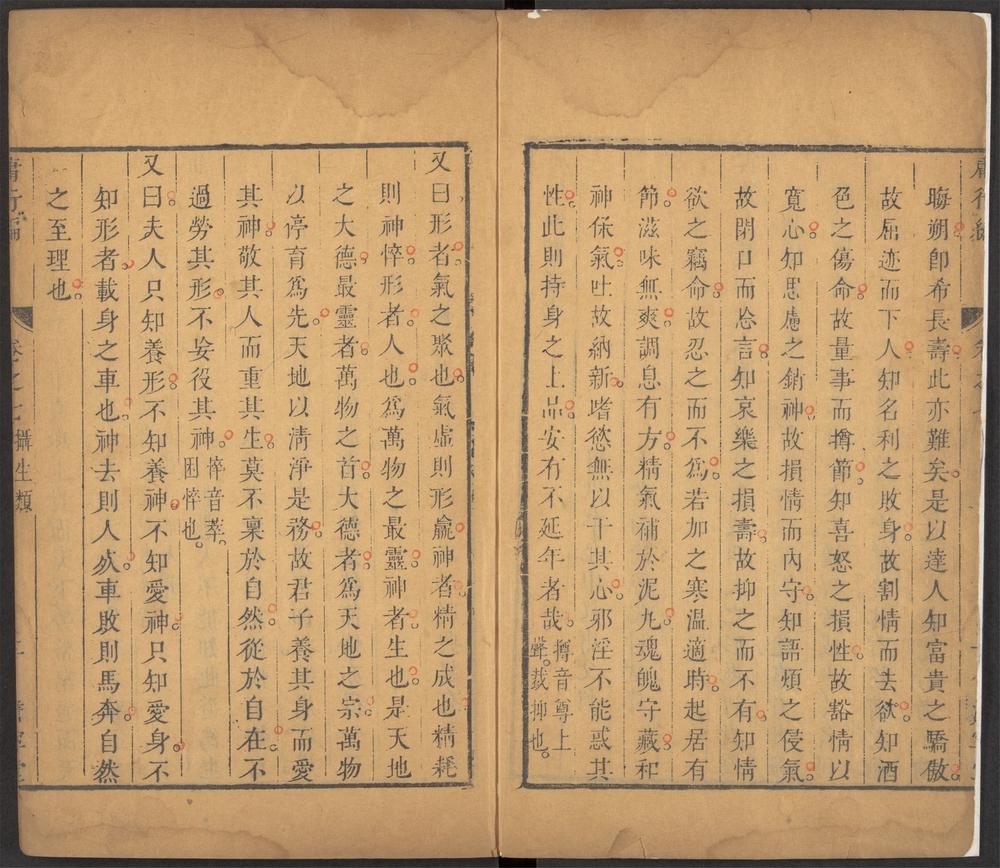 晦朔卽希長壽此亦難矣是以達人知富貴之驕傲
故屈迹而下人知名利之敗身故割情而去欲知酒
色之傷命故量事而撙節知喜怒之損性故豁情以
寬心知思慮之銷神故損情而內守知語煩之侵氣
故閉口而忩言知哀樂之損壽故抑之而不有知情
欲之竊命故忍之而不爲若加之寒溫適時起居有
節滋味無爽調息有方精氣補於泥九魂魄守藏和
神保氣吐故納新嗜慾無以干其心邪淫不能惑其
性此則持身之上品安有不延年者哉撙音尊上
聲裁抑也
又曰形者氣之聚也氣虛則形羸神者精之成也精耗
則神悴形者人也爲萬物之最靈神者生也是天地
之大德最靈者萬物之首大德者爲天地之宗萬物
以停育爲先天地以淸淨是務故君子養其身而愛
其神敬其人而重其生莫不稟於自然從於自在不
過勞其形不妄役其神悴音萃
困悴也
又曰夫人只知養形不知養神不知愛神只知愛身不
知形者載身之車也神去則人死車敗則馬奔自然
之至理也
卷之七 攝生類